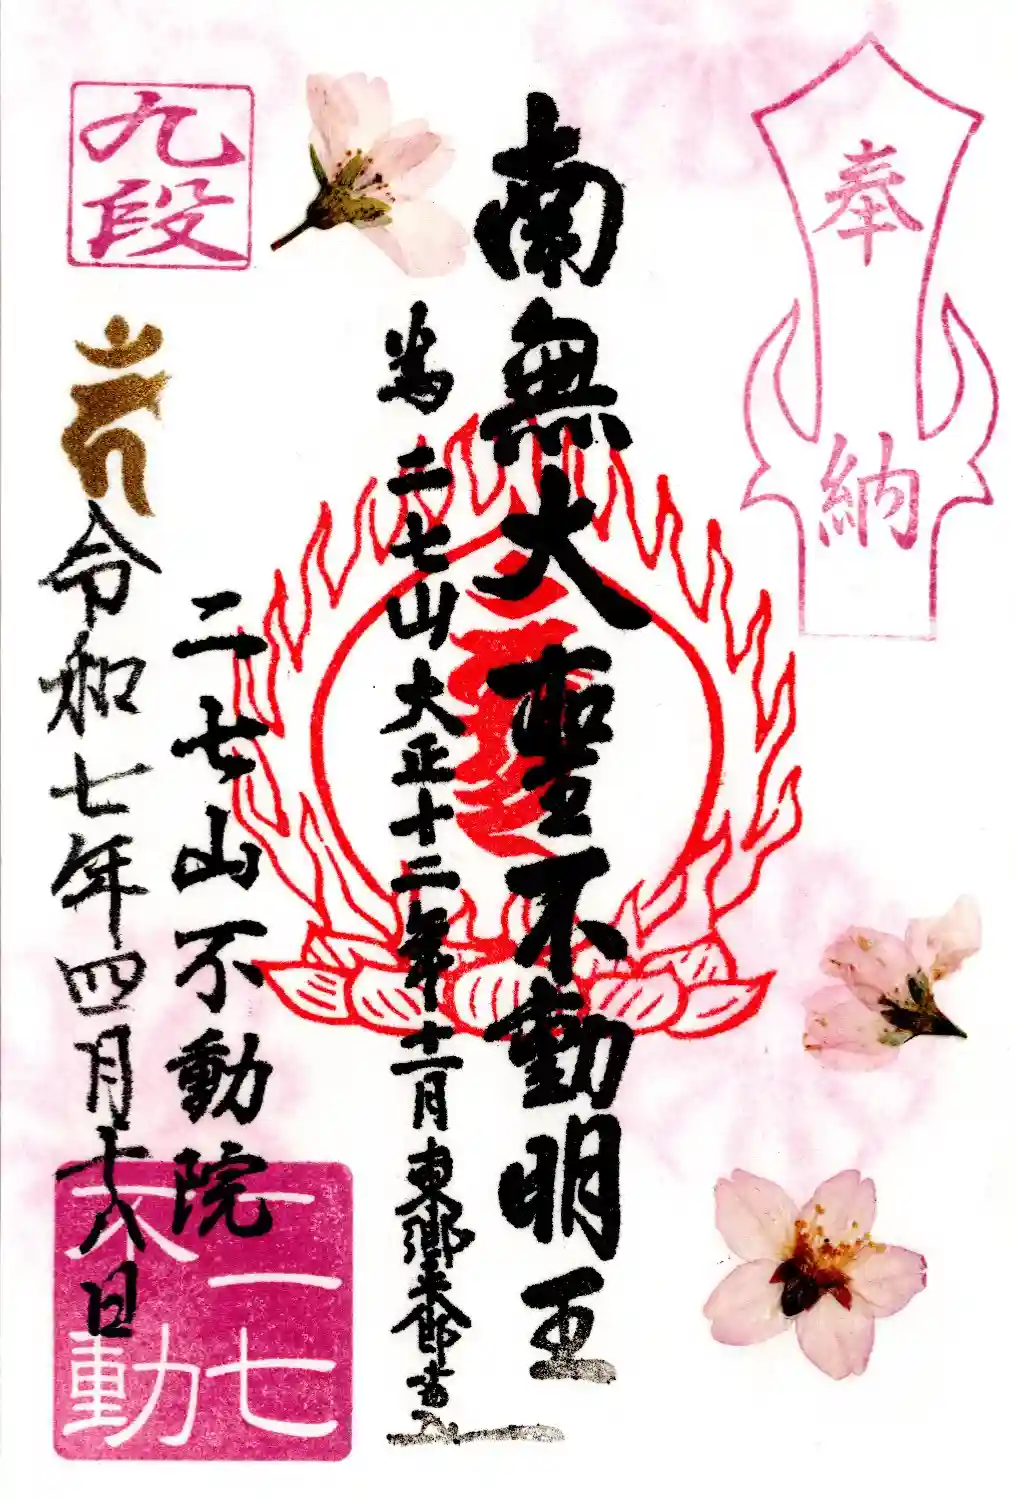 奉納
南無大聖不動明王
為二七山大正十二年十一月東郷平八郎書
九段
二七山不動院
令和七年四月十八日
二七不動